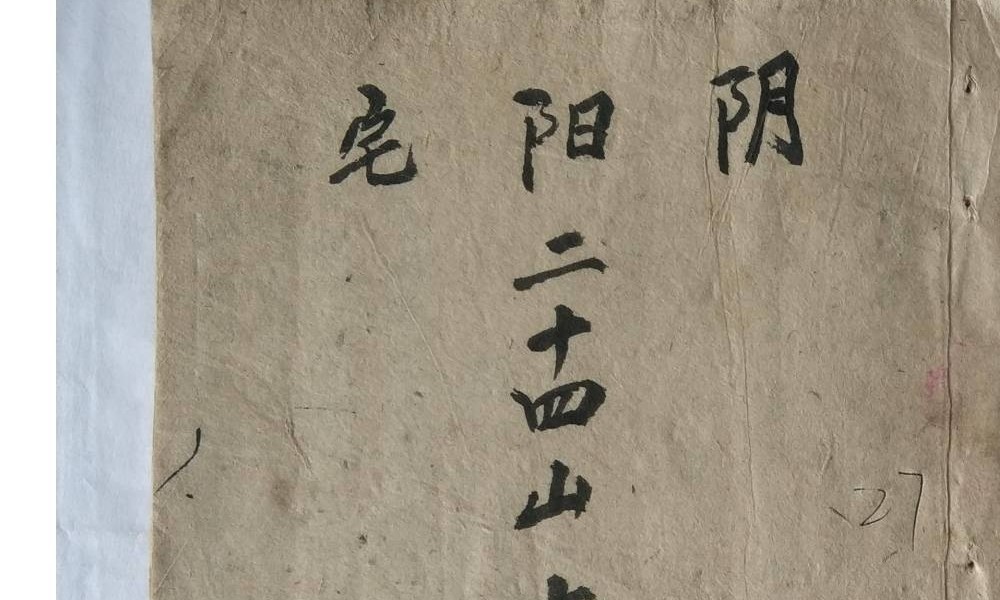 阴阳宅
二十四山
27